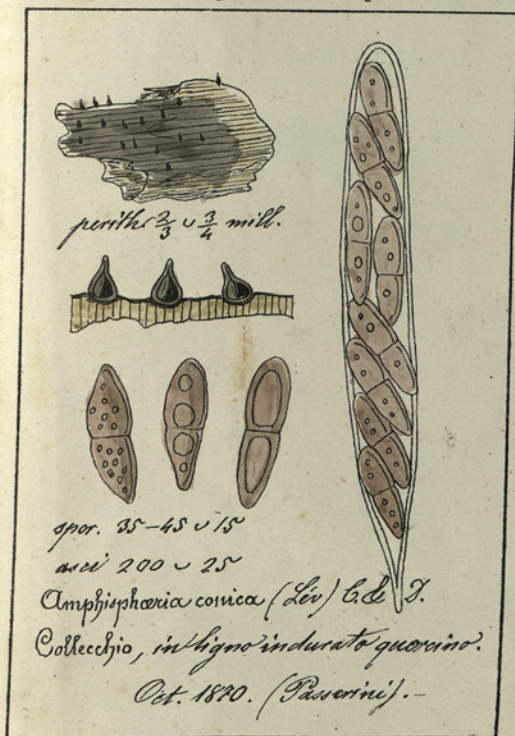 perith 2/3 ᴗ 3/4 mill.
spor. 35–45 ᴗ 15
asci 200 ᴗ 25
Amphisphæria conica (Lév) C. & D.
Collecchio, in ligno indurato quercino.
Oct. 1870. (Passerini).–